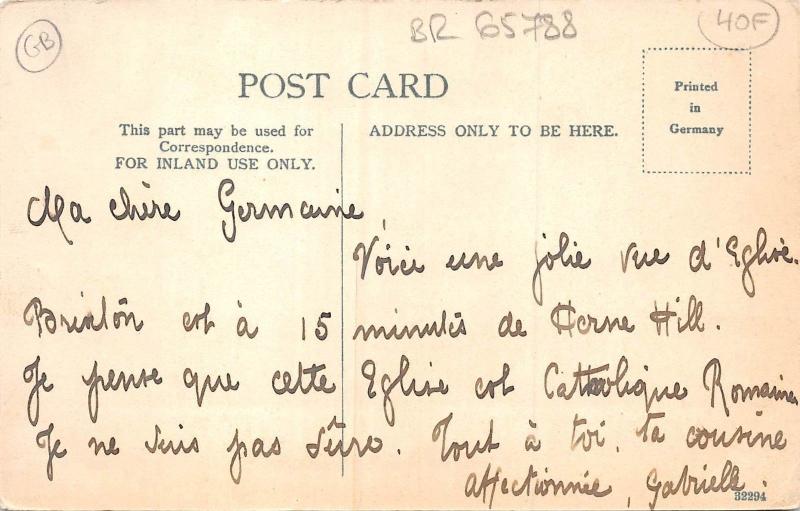 GB
BR 65788
40F
POST CARD
Printed
in
Germany
This part may be used for
Correspondence.
FOR INLAND USE ONLY.
ADDRESS ONLY TO BE HERE.
Ma chère Germaine,
Voici une jolie vue d'Eglise.
Brixton est à 15 minutes de Herne Hill.
Je pense que cette Eglise est Catholique Romaine
Je ne suis pas sûre. Tout à toi, ta cousine
affectionnée, Gabrielle.
32294